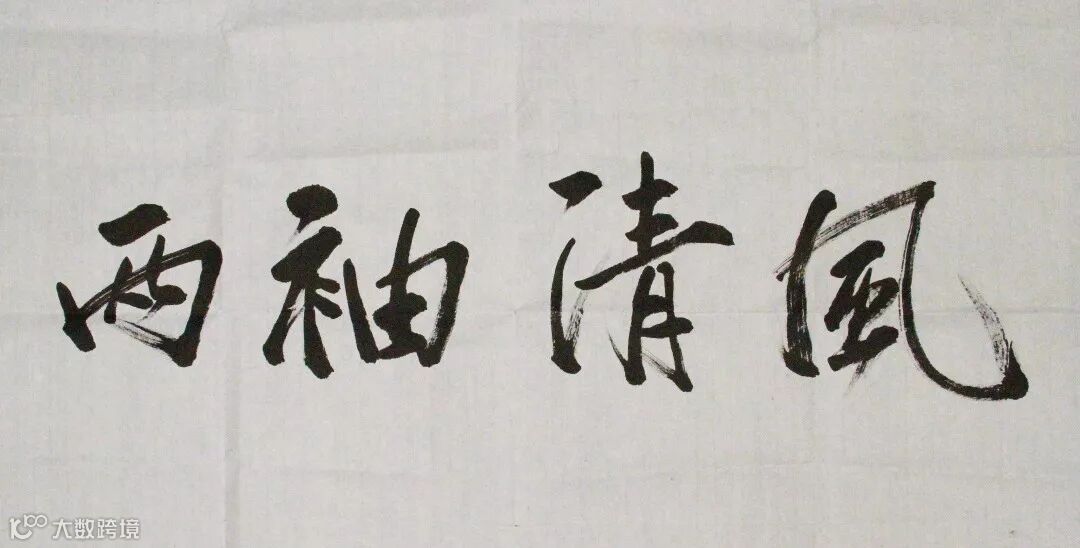 两袖清風
大数跨境